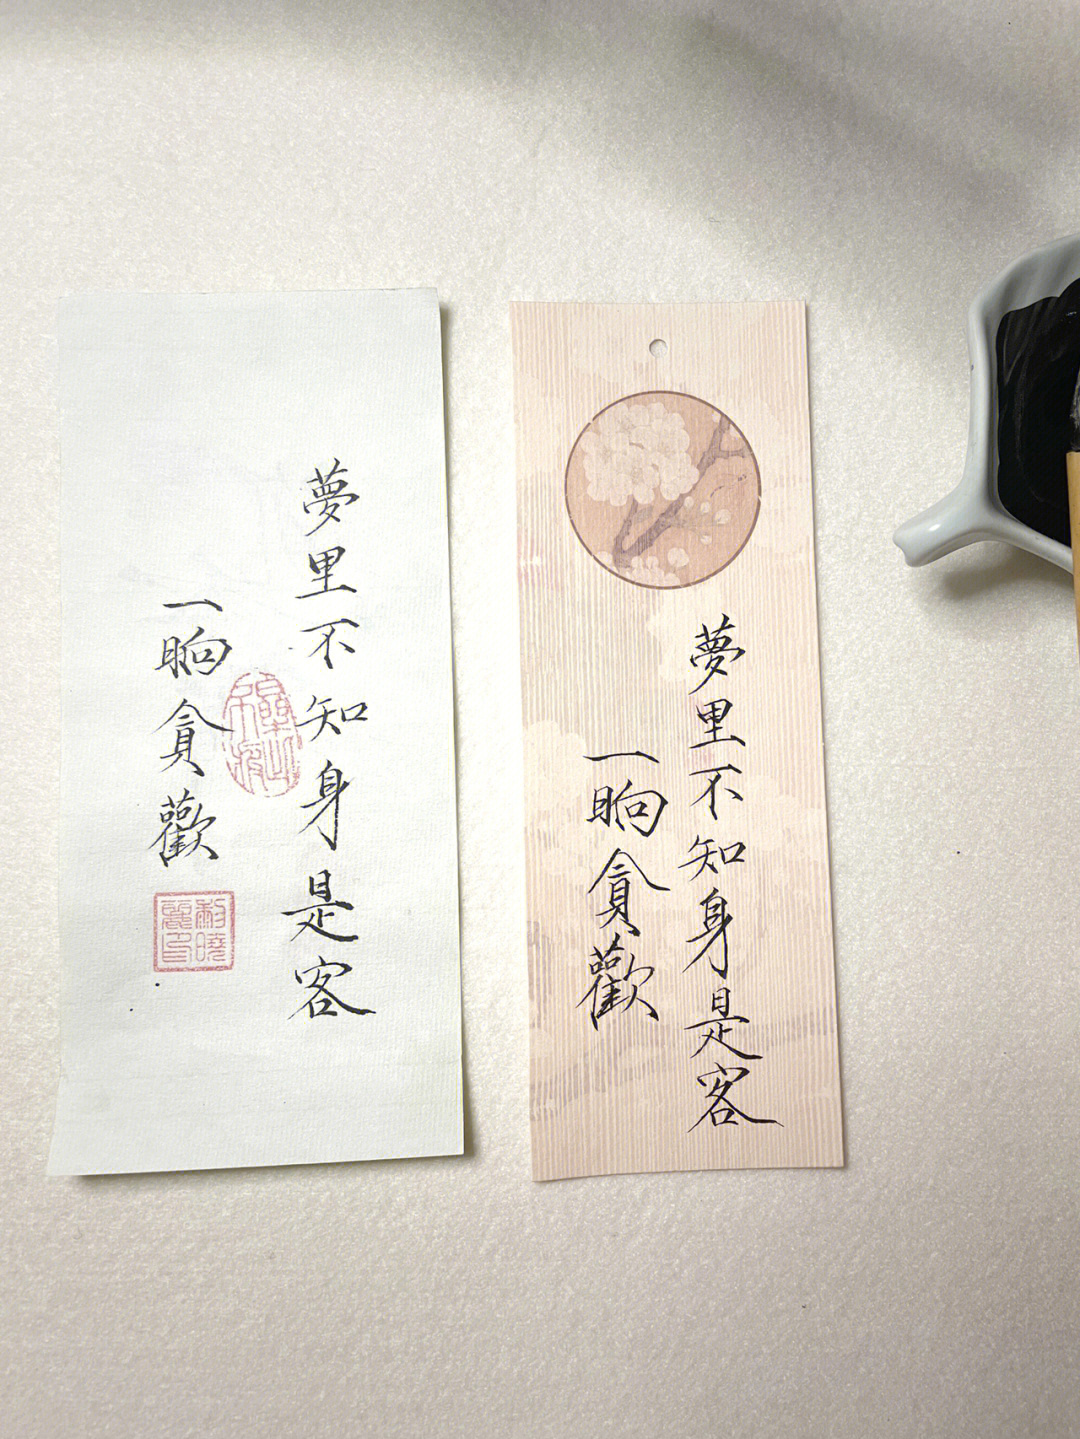 夢里不知身是客
一晌貪歡
夢里不知身是客
一晌貪歡